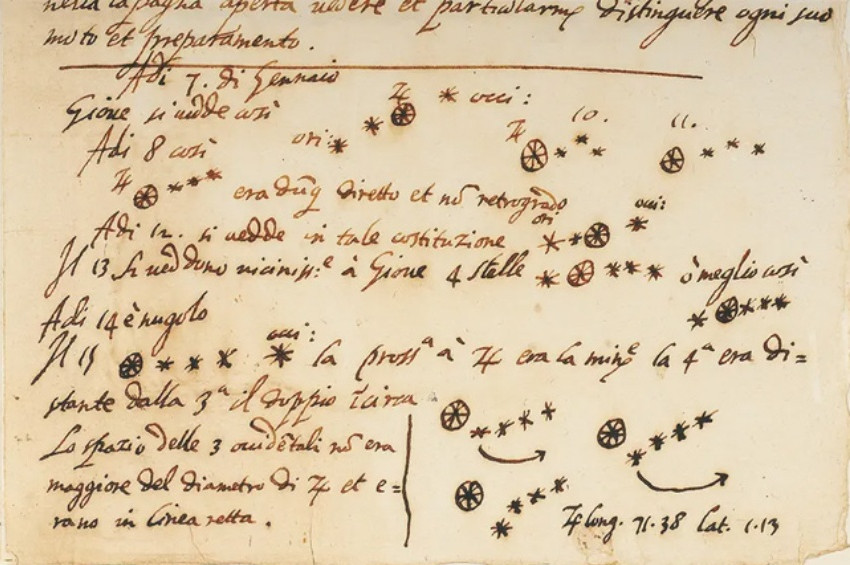 nella capagna aperta vedere et particularm̃e distinguere ogni suo
moto et preparamento.
Adi 7. di Gennaio
Giove si vedde così ♃ * occi:
ori: *
Adi 8 così ♃ 10. 11.
♃ era dũq̃ diretto et nõ retrogrado
Adi 12. si vedde in tale costituzione ori occi:
Il 13 si veddono vicinis:e à Giove 4 stelle ò meglio così
Adi 14 è nugolo
Il 15 occi: la prossa à ♃ era la mine la 4a era di=
stante dalla 3a il doppio ĩcirca
Lo spazio delle 3 occidẽtali nõ era
maggiore del diametro di ♃ et e=
rano in linea retta.
♃ long. 71.38 lat. 1.13